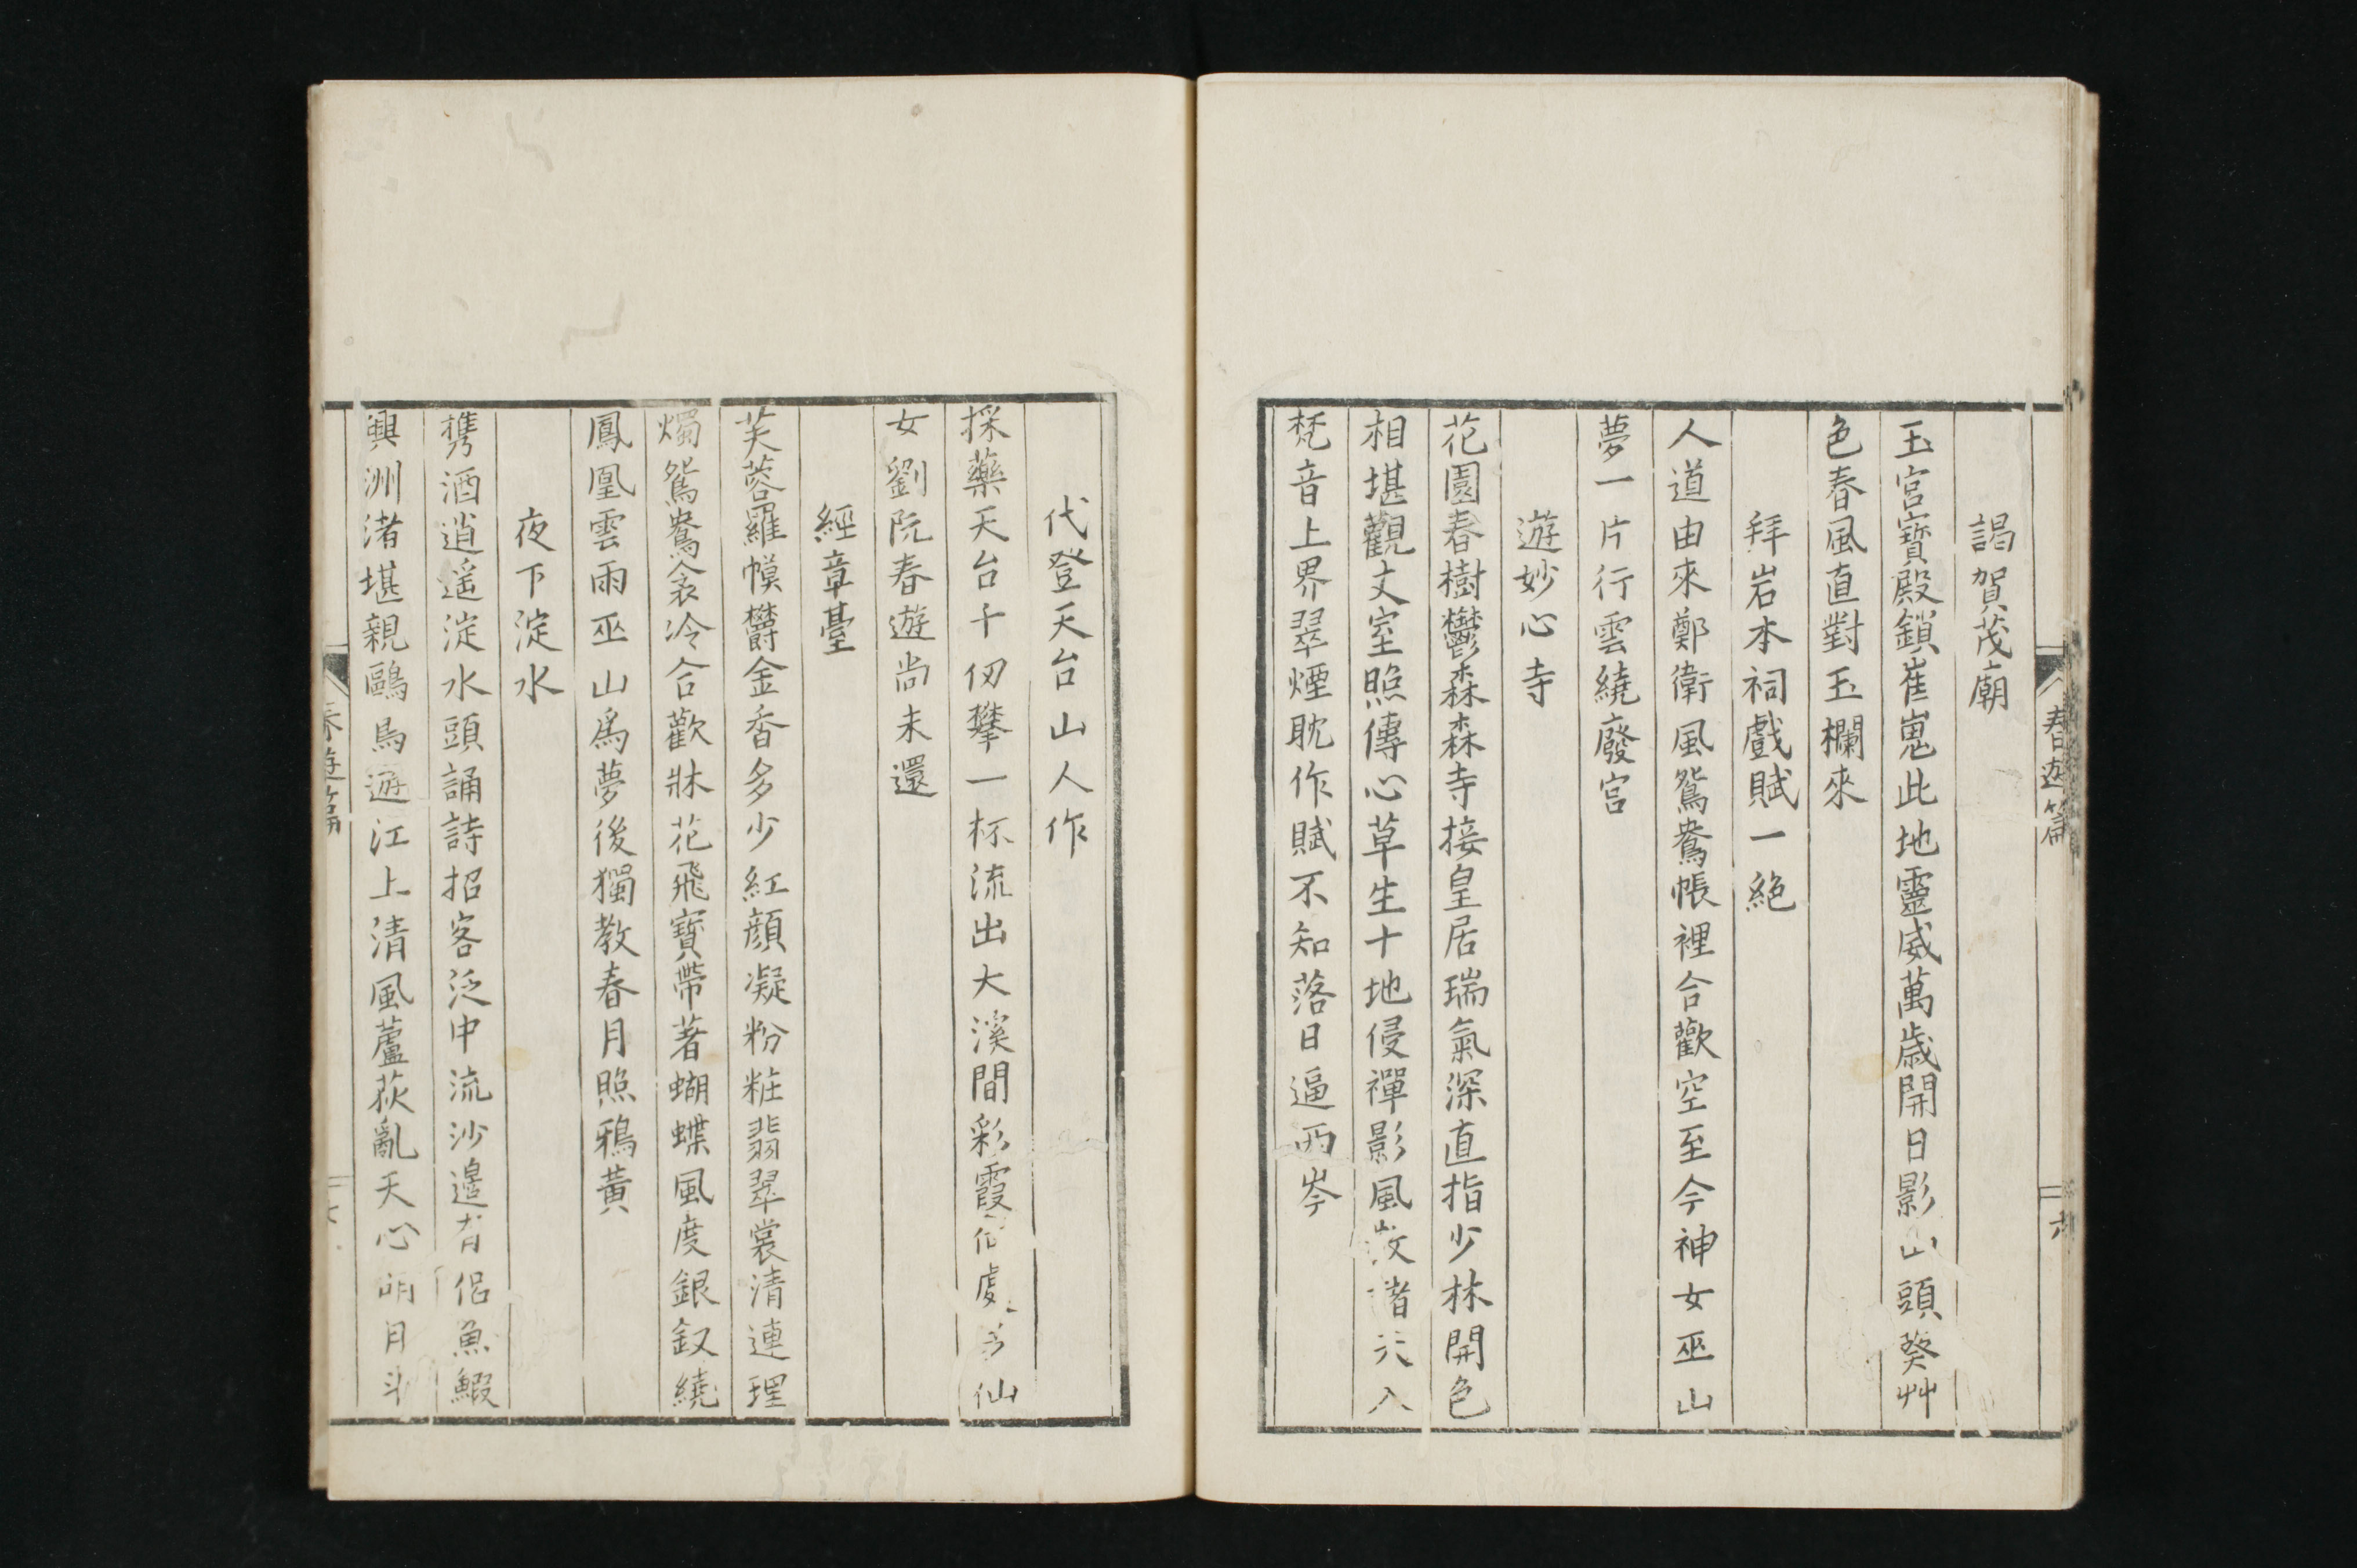 春遊篇
六
謁賀茂廟
玉宮寶殿鎖崔嵬此地靈威萬歳開日影山頭葵艸
色春風直對玉欄來
拜岩本祠戲賦一絶
人道由來鄭衛風鴛鴦帳裡合歡空至今神女巫山
夢一片行雲繞廢宮
遊妙心寺
花園春樹鬱森森寺接皇居瑞氣深直指少林開色
相堪觀丈室照傳心草生十地侵禪影風散諸天入
梵音上界翠煙耽作賦不知落日逼西岑
代登天台山人作
採藥天台千仞攀一杯流出大溪間彩霞何處 仙
女劉阮春遊尚未還
經章臺
芙蓉羅幙欝金香多少紅顔凝粉粧翡翠裳清連理
燭鴛鴦衾冷合歡牀花飛寶帶著蝴蝶風度銀釵繞
鳳凰雲雨巫山爲夢後獨教春月照鴉黄
夜下淀水
携酒逍遥淀水頭誦詩招客泛中流沙邉有侶魚鰕
興洲渚堪親鷗鳥遊江上清風蘆荻亂天心明月斗
春遊篇